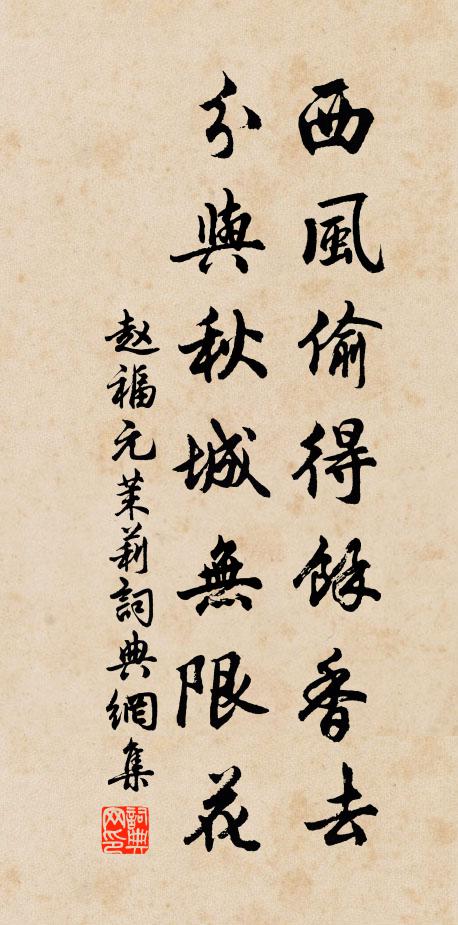 西風偷得餘香去
分與秋城無限花
赵福元茉莉詞典網集
詞典网印